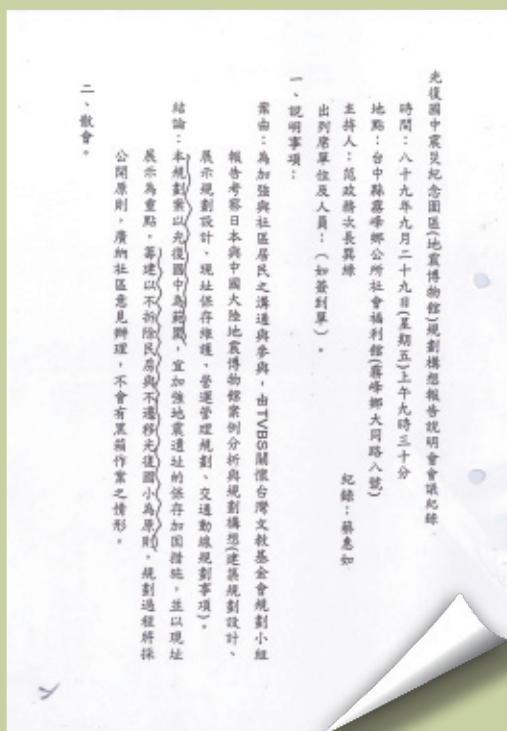 光復國中震災紀念園區(地震博物館)規劃構想報告說明會會議紀錄
時間：八十九年九月二十九日(星期五)上午九時三十分
地點：台中縣霧峰鄉公所社會福利館(霧峰鄉大同路八號)
主持人：范政務次長巽綠
紀錄：蔡惠如
出列席單位及人員：（如簽到單）。
一、說明事項：
案由：為加強與社區居民之溝通與參與，由TVBS關懷台灣文教基金會規劃小組
報告考察日本與中國大陸地震博物館案例分析與規劃構想(建築規劃設計、
展示規劃設計、現址保存維護、營運管理規劃、交通動線規劃事項)。
結論：本規劃案以光復國中為範圍，宜加強地震遺址的保存加固措施，並以現址
展示為重點。籌建以不拆除民房與不遷移光復國小為原則。規劃過程將採
公開原則，廣納社區意見辦理，不會有黑箱作業之情形。
二、散會。